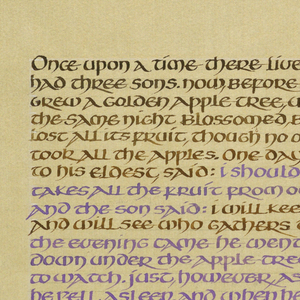 Once upon a time there live
had three sons. now before
grew a golden apple tree, w
the same night blossomed, b
lost all its fruit, though no o
took all the apples. One day
to his eldest, said: i should
takes all the fruit from o
and the son said: i will kee
and will see who gathers
the evening came he went
down under the apple-tree
to watch. just, however, as
he fell asleep and when he